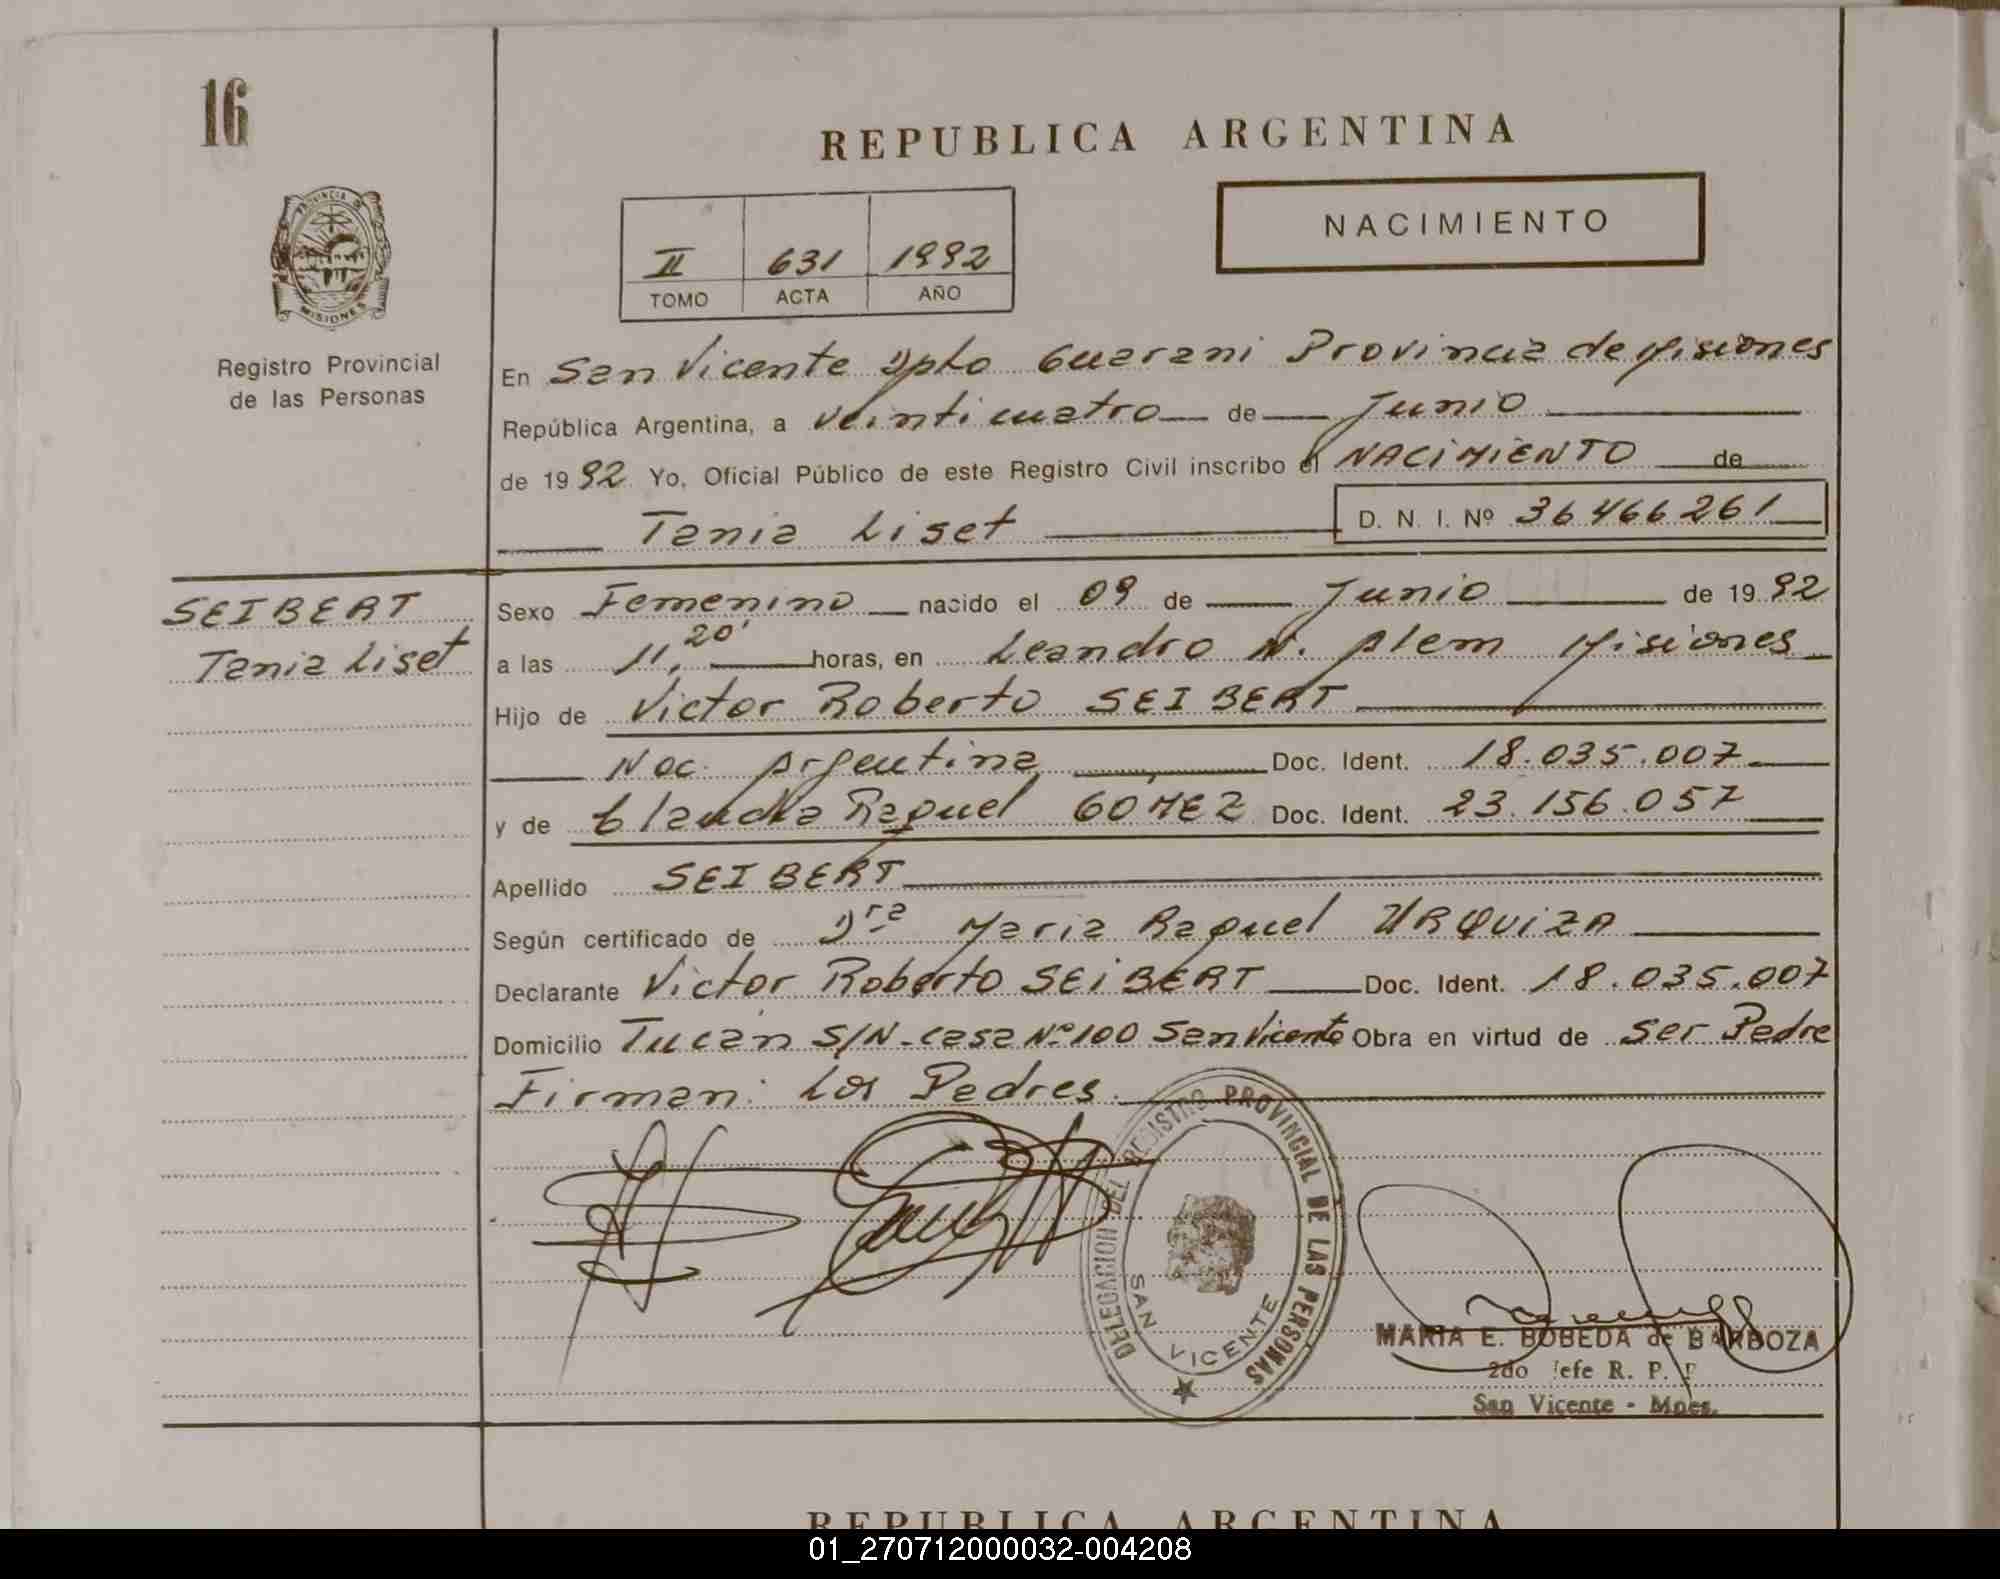 16
REPUBLICA ARGENTINA
PROVINCIA DE
MISIONES
Registro Provincial
de las Personas
II 631 1992
TOMO ACTA AÑO
NACIMIENTO
En San Vicente Dpto Guarani Provincia de Misiones
República Argentina, a veinticuatro de Junio
de 1992 Yo, Oficial Público de este Registro Civil inscribo el NACIMIENTO de
Tania Liset D. N. I. Nº 36466261
SEIBERT
Tania Liset
Sexo Femenino nacido el 09 de Junio de 1992
a las 11,20' horas, en Leandro N. Alem Misiones
Hijo de Victor Roberto SEIBERT
Nac. Argentina Doc. Ident. 18.035.007
y de Claudia Raquel GÓMEZ Doc. Ident. 23.156.057
Apellido SEIBERT
Según certificado de Dra Maria Raquel URQUIZA
Declarante Victor Roberto SEiBERT Doc. Ident. 18.035.007
Domicilio Tucán S/N-casa Nº 100 San Vicente Obra en virtud de Ser Padre
Firman: Los Padres.
DELEGACION DEL REGISTRO PROVINCIAL DE LAS PERSONAS
SAN VICENTE
MARIA E. BOBEDA de BARBOZA
2do Jefe R. P. P.
San Vicente - Mnes.
REPUBLICA ARGENTINA
01_270712000032-004208